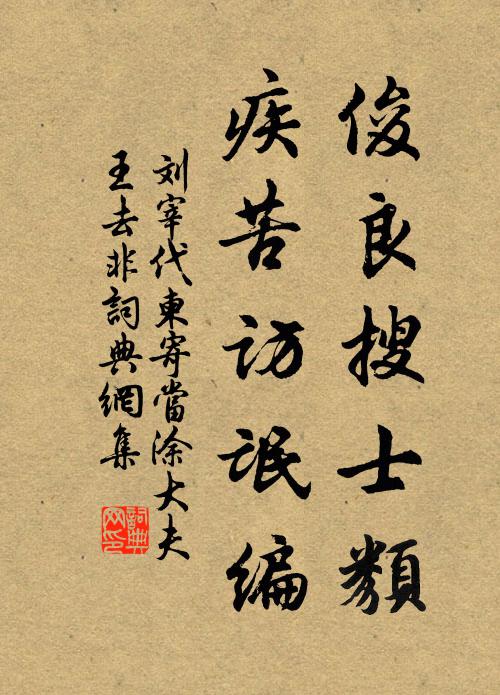 俊良搜士類
疾苦訪氓編
刘宰代東寄當涂大夫
王去非詞典網集
詞典
网印